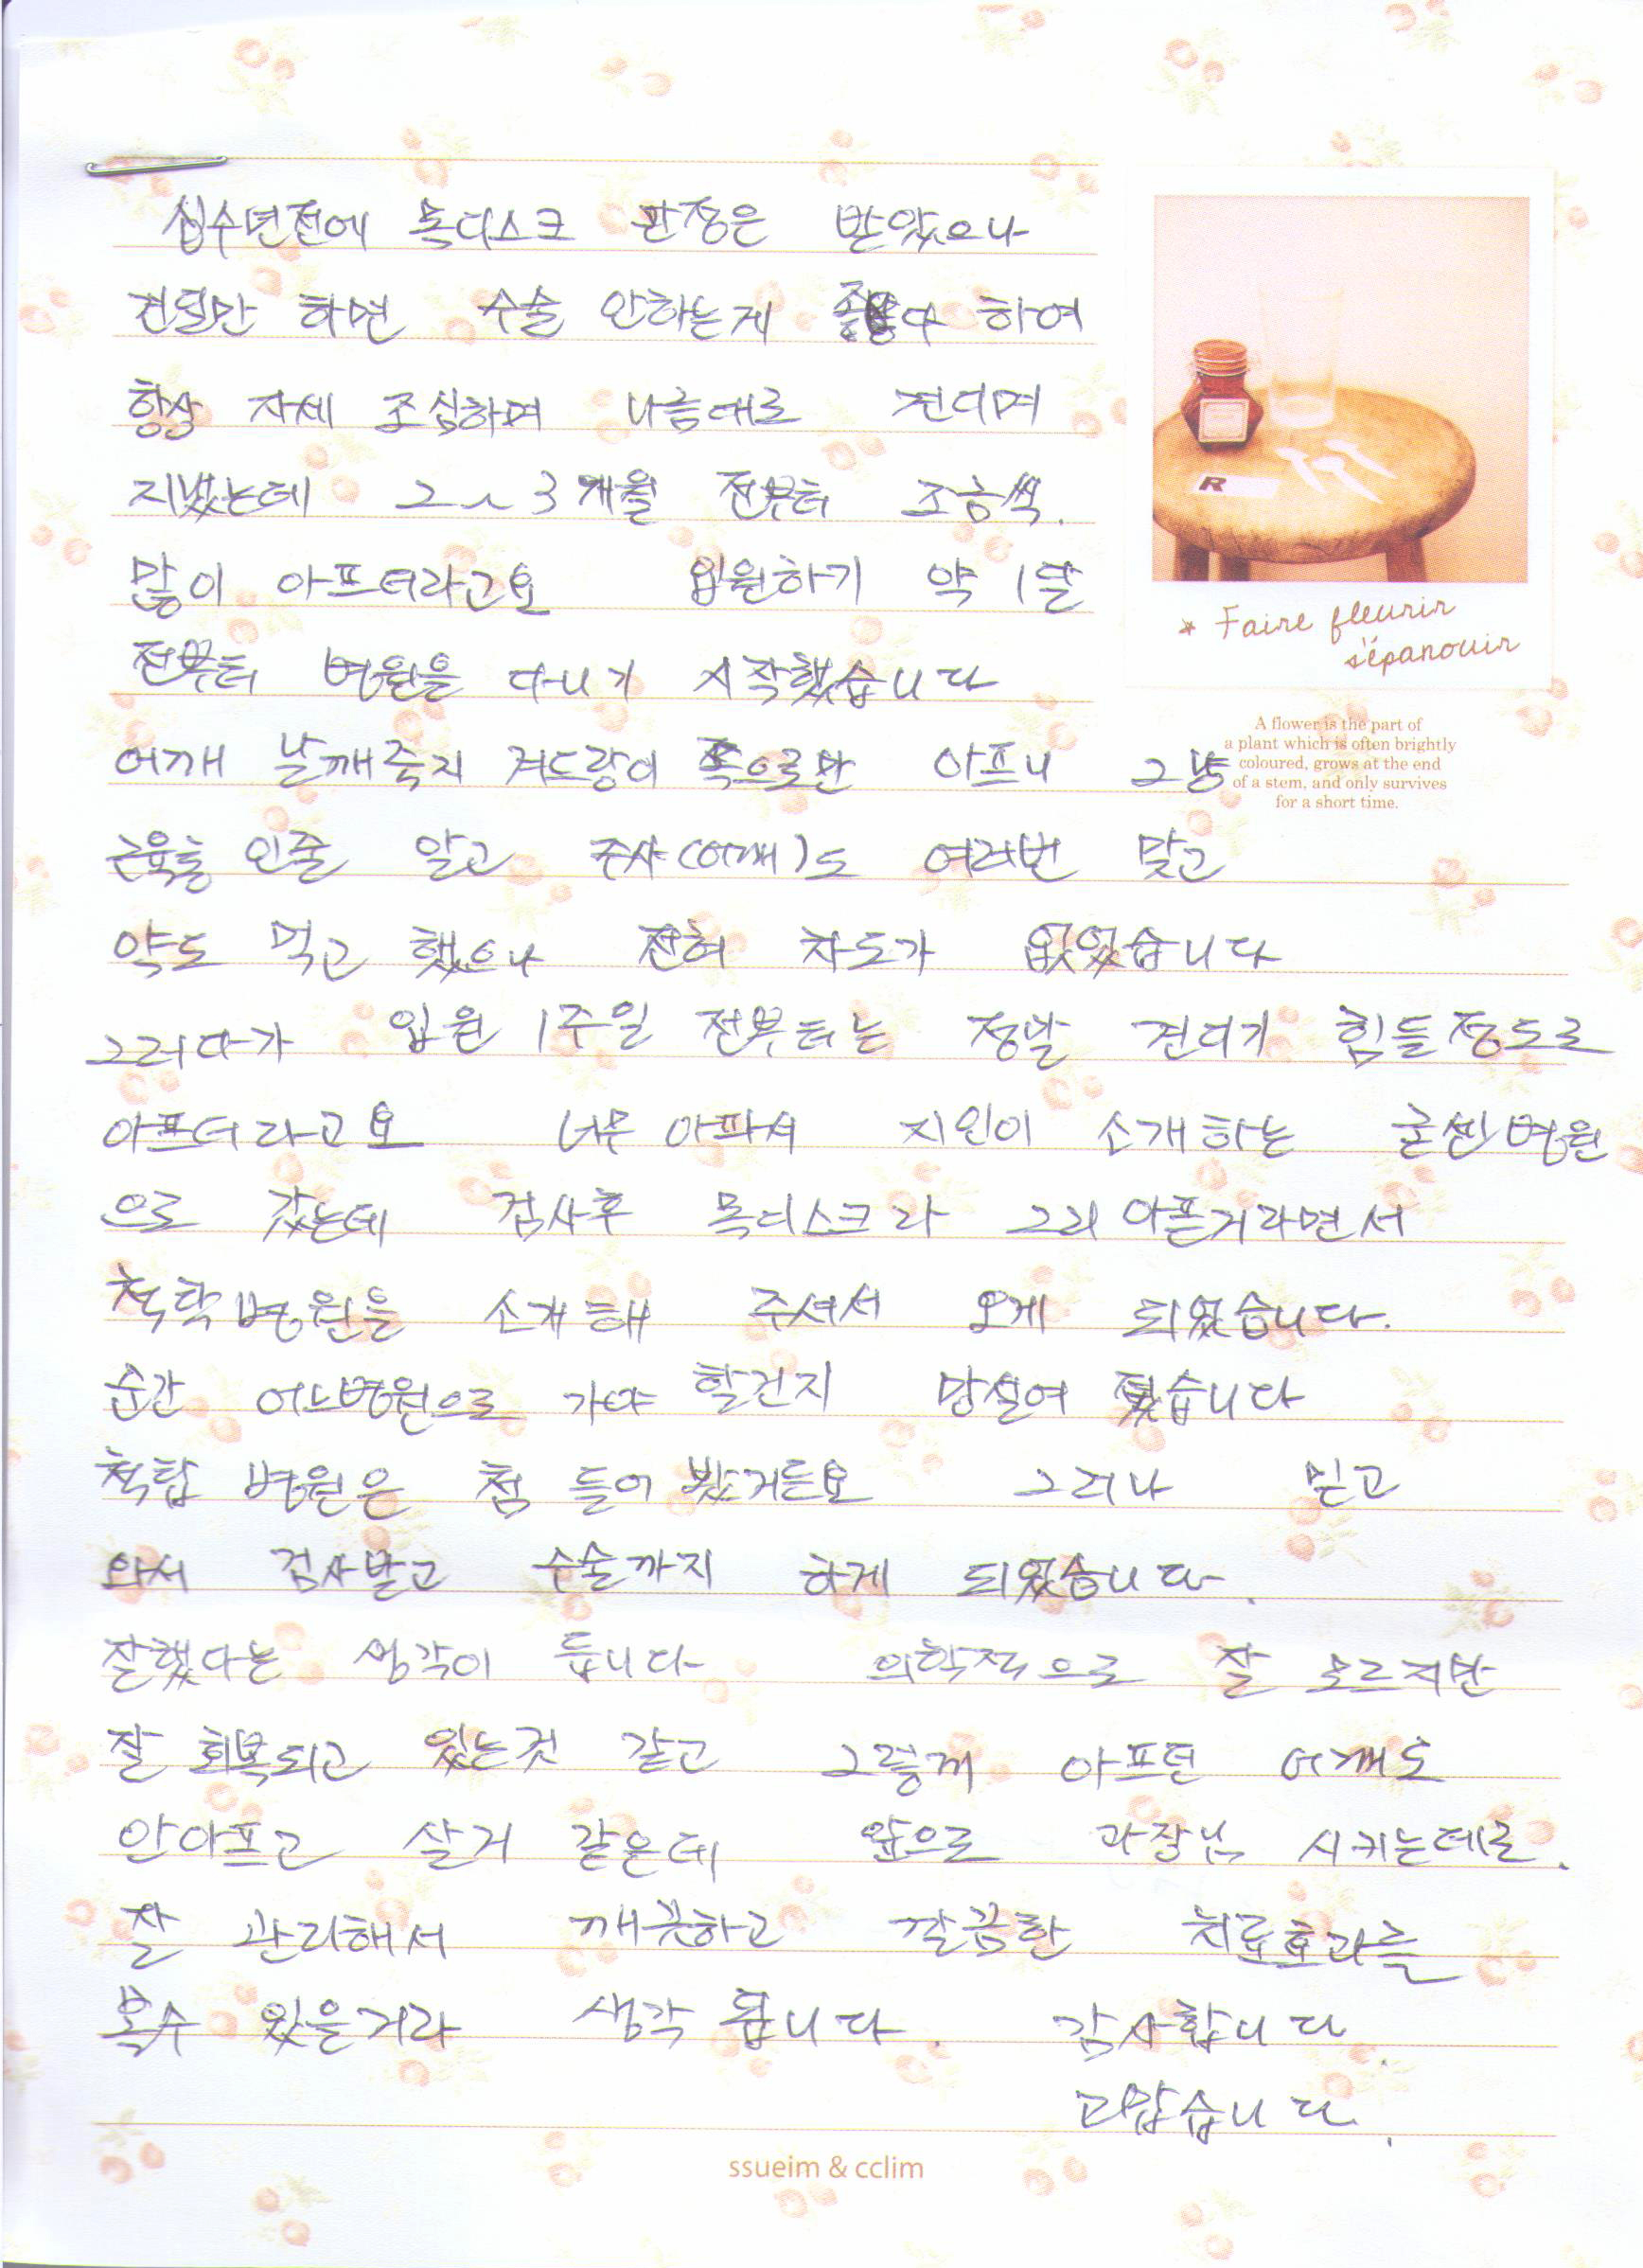 십수년전에 목디스크 판정은 받았으나
견딜만 하면 수술 안하는게 좋다 하여
항상 자세 조심하며 나름대로 견디며
지냈는데 2~3개월 전부터 조금씩.
많이 아프더라고요 입원하기 약 1달
전부터 병원을 다니기 시작했습니다
어깨 날깨죽지 겨드랑이 쪽으로만 아프니 그냥
근육통 인줄 알고 주사(어깨)도 여러번 맞고
약도 먹고 했으나 전혀 차도가 없었습니다
그러다가 입원 1주일 전부터는 정말 견디기 힘들정도로
아프더라고요 너무 아파서 지인이 소개하는 굳센병원
으로 갔는데 검사후 목디스크라 그리 아픈거라면서
척탑병원을 소개해 주셔서 오게 되었습니다.
순간 어느병원으로 가야 할건지 망설여 졌습니다
척탑 병원은 첨 들어봤거든요 그러나 믿고
와서 검사받고 수술까지 하게 되었습니다.
잘했다는 생각이 듭니다 의학적으로 잘 모르지만
잘 회복되고 있는것 같고 그렇게 아프던 어깨도
안아프고 살거 같은데 앞으로 과장님 시키는데로.
잘 관리해서 깨끗하고 깔끔한 치료효과를
볼수 있을거라 생각 됩니다. 감사합니다.
고맙습니다.
* Faire fleurir
s'épanouir
A flower is the part of
a plant which is often brightly
coloured, grows at the end
of a stem, and only survives
for a short time.
R
ssueim & cclim